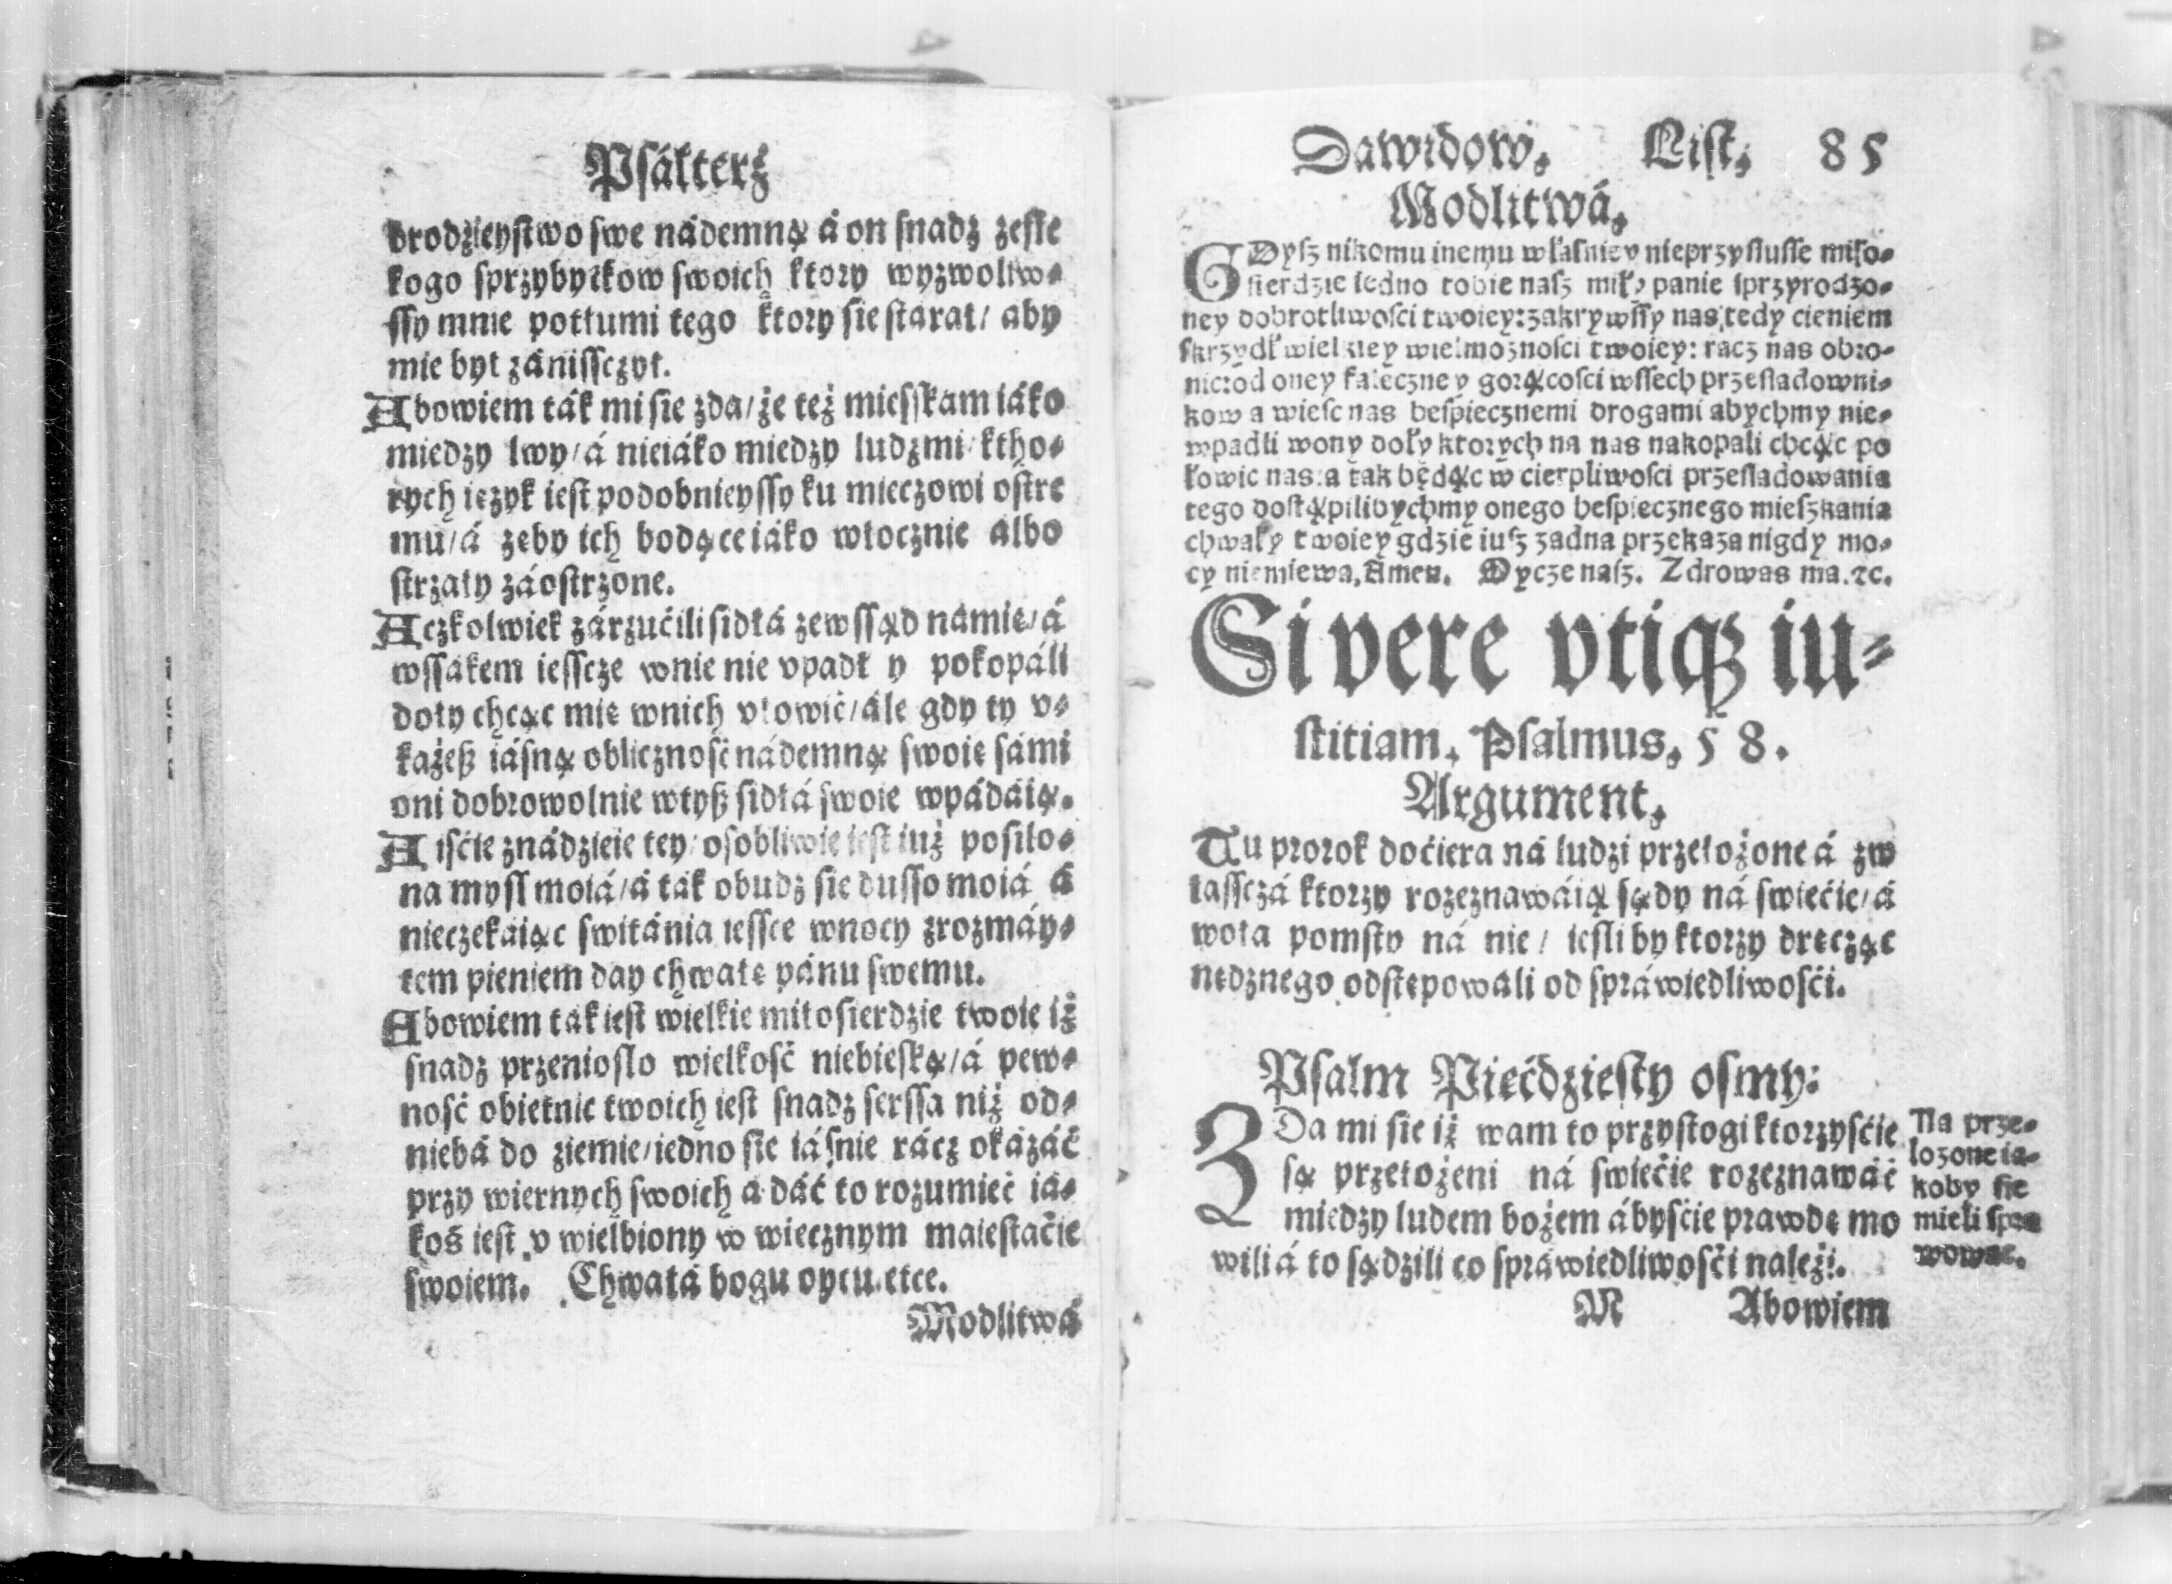 Psałterz
brodzieystwo swe nádemną á on snadz zesłe
kogo sprzybytkow swoich ktory wyzwoliw-
ssy mnie pottumi tego ktory sie starał/ aby
mie był zánissczył.
Abowiem ták mi sie zda/ że też miesskam iáko
miedzy lwy/ á nieiáko miedzy ludzmi/ ktho-
rych ięzyk iest podobnieyssy ku mieczowi ostre
mu/ á zęby ich bodące iáko włocznie álbo
strzały záostrzone.
Aczkolwiek zárzućili sidłá zewssąd námię/ á
wssákem iesscze wnie nie vpadł y pokopáli
doły chcąc mię wnich vłowić/ ále gdy ty v-
każeß iásną obliczność nádemną swoię sámi
oni dobrowolnie wtyß sidłá swoie wpádáią.
A iśćie znádzieie tey/ osobliwie iest iuż posilo-
na mysl moiá/ á ták obudz sie dusso moiá á
nieczekáiąc switánia iessce wnocy zrozmáy-
tem pieniem day chwałę pánu swemu.
Abowiem tak iest wielkie miłosierdzie twoie iż
snadz przeniosło wielkość niebieską/ á pew-
ność obietnic twoich iest snadz serssa niż od-
niebá do ziemie/ iedno sie iásnie rácz okázáć
przy wiernych swoich a dáć to rozumieć iá-
koś iest v wielbiony w wiecznym maiestaćie
swoiem. Chwałá bogu oycu. etce.
Modlitwá
Dawidow. List. 85
Modlitwá.
GDysz nikomu inemu własniey nieprzyslusse miło-
sierdzie iedno tobie nasz miły panie sprzyrodzo-
ney dobrotliwosci twoiey: zakrywssy nas tedy cieniem
skrzydł wielkiey wielmożnosci twoiey: racz nas obro-
nic od oney kaleczney gorącosci wssech przesladowni-
kow a wiesc nas bespiecznemi drogami abychmy nie-
wpadli wony doły ktorych na nas nakopali chcąc po
łowic nas: a tak będąc w cierpliwosci przesladowania
tego dostąpilibychmy onego bespiecznego mieszkania
chwały twoiey gdzie iusz zadna przekaza nigdy mo-
cy niemiewa, Amen. Oycze nasz. Zdrowas ma. ꝛc.
Si vere vtiqꝫ iu-
stitiam. Psalmus. 58.
Argument.
Tu prorok doćiera ná ludzi przełożone á zw
łasscżá ktorzy rozeznawáią sądy ná swiećie/ á
woła pomsty ná nie/ iesliby ktorzy dręcząc
nędznego odstępowáli od spráwiedliwośći.
Psalm Pięćdziesty osmy:
ZDa mi sie iż wam to przystogi ktorzyśćie
są przełożeni ná swiećie rozeznawáć
miedzy ludem bożem ábyśćie prawdę mo
wili á to sądzili co spráwiedliwośći należi.
Na prze-
lozone ia-
koby sie
mieli spra
wowac.
M Abowiem